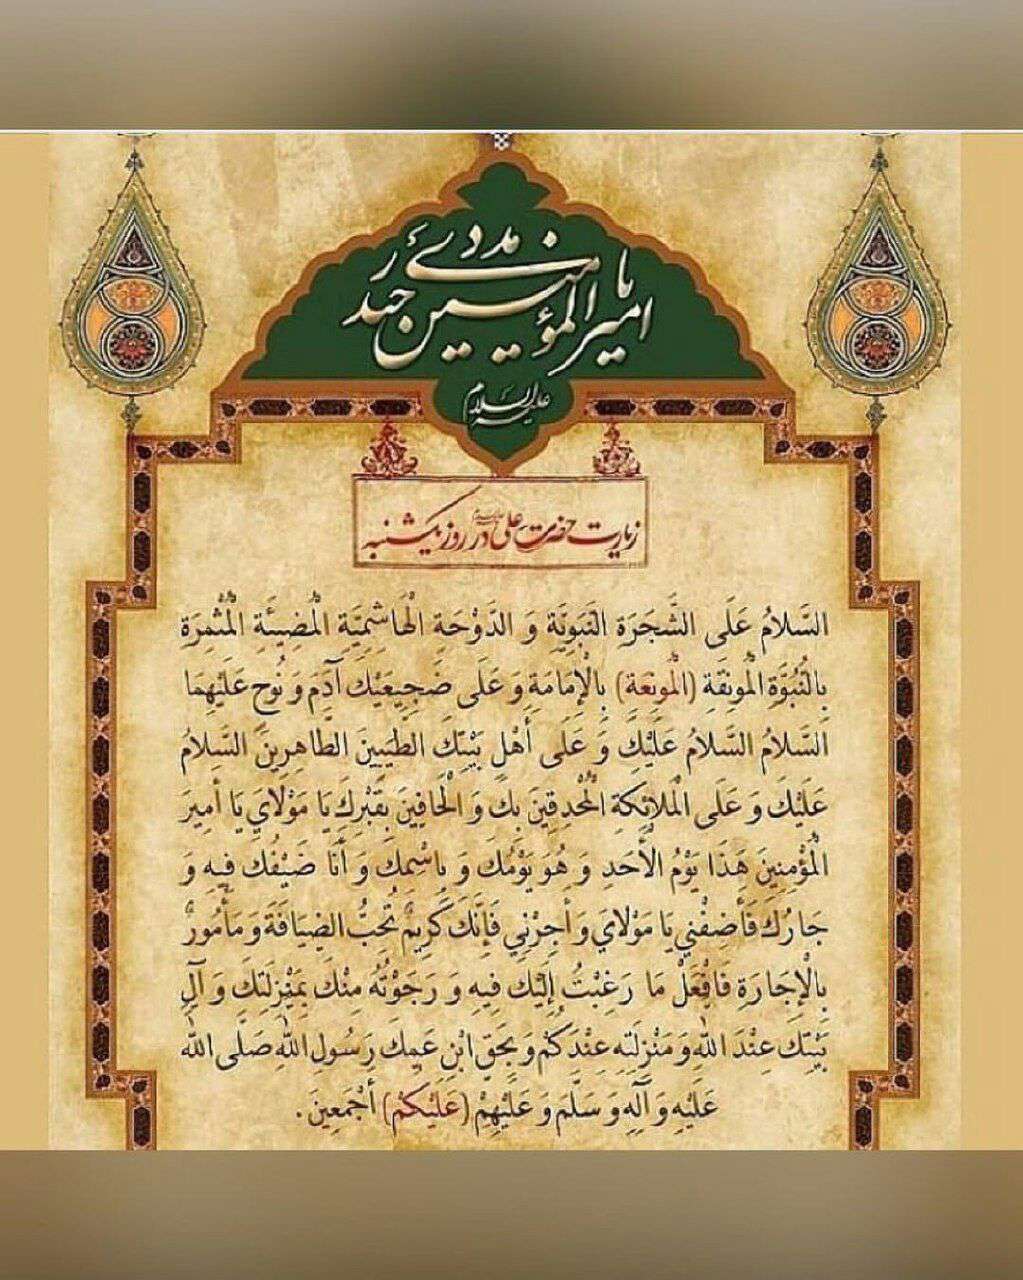 یا امیرالمؤمنین حیدر مددی
علیه السلام
زیارت حضرت علی علیه السلام در روز یکشنبه
السَّلامُ عَلَى الشَّجَرَةِ النَّبَوِيَّةِ وَ الدَّوْحَةِ الْهَاشِمِيَّةِ الْمُضِيئَةِ الْمُثْمِرَةِ
بِالنُّبُوَّةِ الْمُونِقَةِ (الْمُونِعَةِ) بِالْإِمَامَةِ وَ عَلَى ضَجِيعَيْكَ آدَمَ وَ نُوحٍ عَلَيْهِمَا
السَّلامُ السَّلامُ عَلَيْكَ وَ عَلَى أَهْلِ بَيْتِكَ الطَّيِّبِينَ الطَّاهِرِينَ السَّلامُ
عَلَيْكَ وَ عَلَى الْمَلائِكَةِ الْمُحْدِقِينَ بِكَ وَ الْحَافِّينَ بِقَبْرِكَ يَا مَوْلايَ يَا أَمِيرَ
الْمُؤْمِنِينَ هَذَا يَوْمُ الْأَحَدِ وَ هُوَ يَوْمُكَ وَ بِاسْمِكَ وَ أَنَا ضَيْفُكَ فِيهِ وَ
جَارُكَ فَأَضِفْنِي يَا مَوْلايَ وَ أَجِرْنِي فَإِنَّكَ كَرِيمٌ تُحِبُّ الضِّيَافَةَ وَ مَأْمُورٌ
بِالْإِجَارَةِ فَافْعَلْ مَا رَغِبْتُ إِلَيْكَ فِيهِ وَ رَجَوْتُهُ مِنْكَ بِمَنْزِلَتِكَ وَ آلِ
بَيْتِكَ عِنْدَ اللَّهِ وَ مَنْزِلَتِهِ عِنْدَكُمْ وَ بِحَقِّ ابْنِ عَمِّكَ رَسُولِ اللَّهِ صَلَّى اللَّهُ
عَلَيْهِ وَ آلِهِ وَ سَلَّمَ وَ عَلَيْهِمْ (عَلَيْكُمْ) أَجْمَعِينَ.